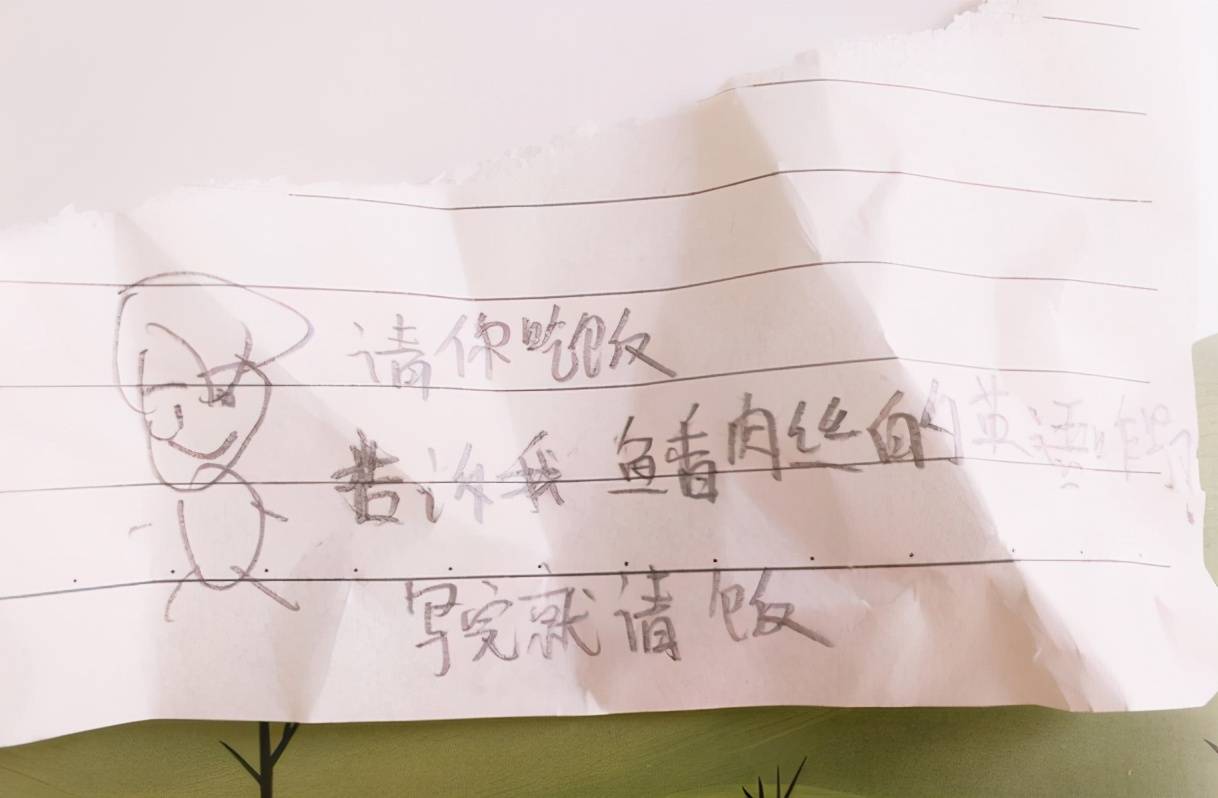 请你吃饭
告诉我 鱼香肉丝的英语咋写
写完就请饭